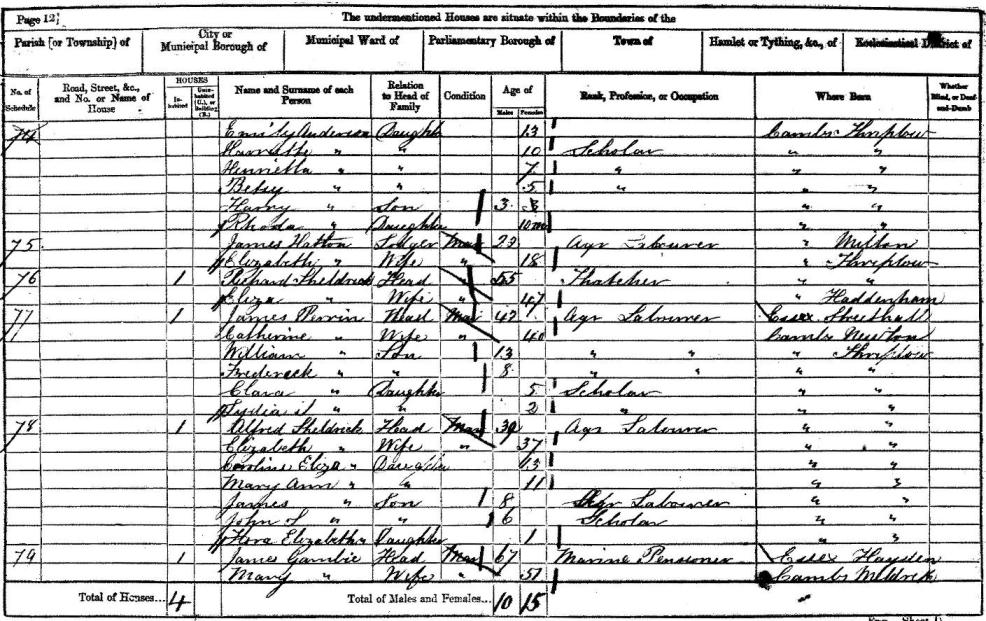 Page 12
The undermentioned Houses are situate within the Boundaries of the
Parish [or Township] of City or Municipal Borough of Municipal Ward of Parliamentary Borough of Town of Hamlet or Tything, &c., of Ecclesiastical District of
No. of Schedule Road, Street, &c., and No. or Name of House HOUSES Inhabited Uninhabited (U.), or Building (B.) Name and Surname of each Person Relation to Head of Family Condition Age of Males Females Rank, Profession, or Occupation Where Born Whether Blind, or Deaf-and-Dumb
74 Emily Anderson Daughter 13 Cambs Thriplow
Harriette " " 10 Scholar " "
Henrietta " " 7 " " "
Betsy " " 5 " " "
Harry " Son 3 " "
Rhoda " Daughter 10 mo " "
75 James Hatton Lodger Mar 22 Agr Labourer " Milton
Elizabeth " Wife 18 " Thriplow
76 1 Richard Sheldrick Head " 55 Thatcher " "
Eliza " Wife " 47 " Haddenham
77 1 James Perrin Head Mar 42 Agr Labourer Essex Streethall
Catherine " Wife " 40 Cambs Newton
William " Son 13 " " " Thriplow
Frederick " " 8 " " " "
Clara " Daughter 5 Scholar " "
Lydia " " 2 " " "
78 1 Alfred Sheldrick Head Mar 39 Agr Labourer " "
Elizabeth " Wife " 37 " "
Caroline Eliza " Daughter 13 " "
Mary Ann " " 11 " "
James " Son 8 Agr Labourer " "
John S " " 6 Scholar " "
Flora Elizabeth " Daughter 1 " "
79 1 James Gambie Head Mar 67 Marine Pensioner Essex Hayden
Mary " Wife " 51 Cambs Meldreth
Total of Houses... 4 Total of Males and Females... 10 15